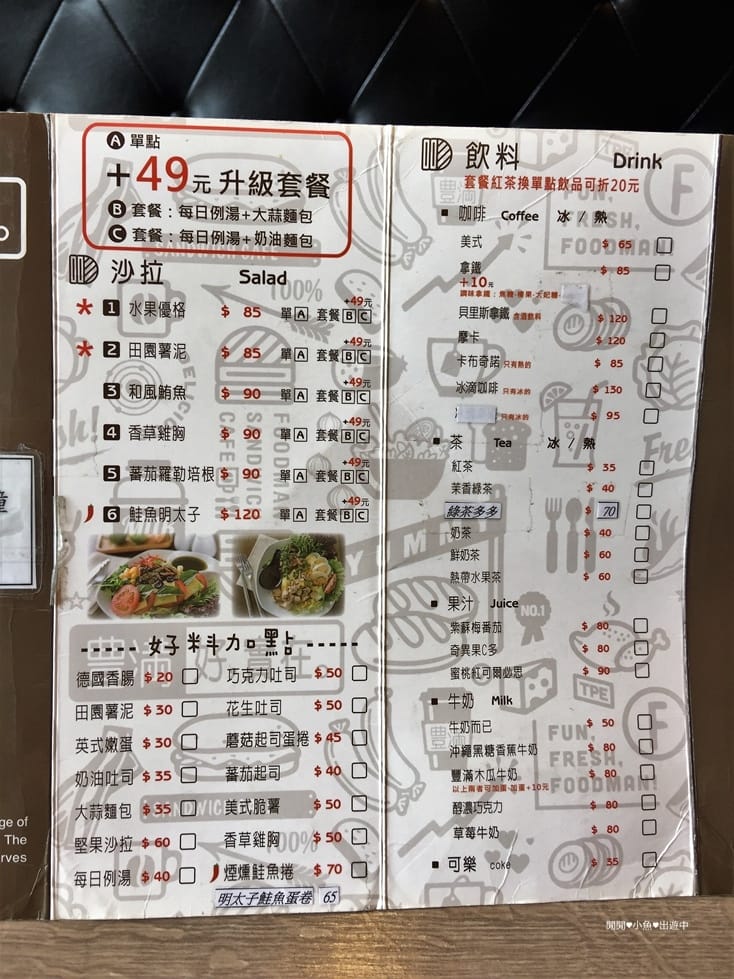 A 單點
+49元 升級套餐
B 套餐：每日例湯+大蒜麵包
C 套餐：每日例湯+奶油麵包
沙拉 Salad
* 1 水果優格 $ 85 單A +49元 套餐BC
* 2 田園薯泥 $ 85 單A +49元 套餐BC
3 和風鮪魚 $ 90 單A +49元 套餐BC
4 香草雞胸 $ 90 單A +49元 套餐BC
5 蕃茄羅勒培根 $ 90 單A +49元 套餐BC
6 鮭魚明太子 $ 120 單A +49元 套餐BC
好料加點
德國香腸 $ 20
田園薯泥 $ 30
英式嫩蛋 $ 30
奶油吐司 $ 35
大蒜麵包 $ 35
堅果沙拉 $ 60
每日例湯 $ 40
巧克力吐司 $ 50
花生吐司 $ 50
蘑菇起司蛋捲 $ 45
蕃茄起司 $ 40
美式脆薯 $ 50
香草雞胸 $ 50
煙燻鮭魚捲 $ 70
明太子鮭魚蛋卷 65
飲料 Drink
套餐紅茶換單點飲品可折20元
咖啡 Coffee 冰 / 熱
美式 $ 65
拿鐵 $ 85
+10元
調味拿鐵：焦糖·榛果·太妃糖
貝里斯拿鐵 含酒飲料 $ 120
摩卡 $ 120
卡布奇諾 只有熱的 $ 85
冰滴咖啡 只有冰的 $ 130
只有冰的 $ 95
茶 Tea 冰 / 熱
紅茶 $ 35
茉香綠茶 $ 40
綠茶多多 $ 70
奶茶 $ 40
鮮奶茶 $ 60
熱帶水果茶 $ 60
果汁 Juice
紫蘇梅番茄 $ 80
奇異果C多 $ 80
蜜桃紅可爾必思 $ 90
牛奶 Milk
牛奶而已 $ 50
沖繩黑糖香蕉牛奶 $ 80
豐滿木瓜牛奶 $ 80
以上兩者可加蛋·加蛋+10元
醇濃巧克力 $ 80
草莓牛奶 $ 80
可樂 coke $ 35
FUN,
FRESH,
FOODMAN!
TPE
NO.1
YUMMY
TPE
FUN,
FRESH,
FOODMAN!
100%
100%
ge of
The
rves
閒閒♥小魚♥出遊中